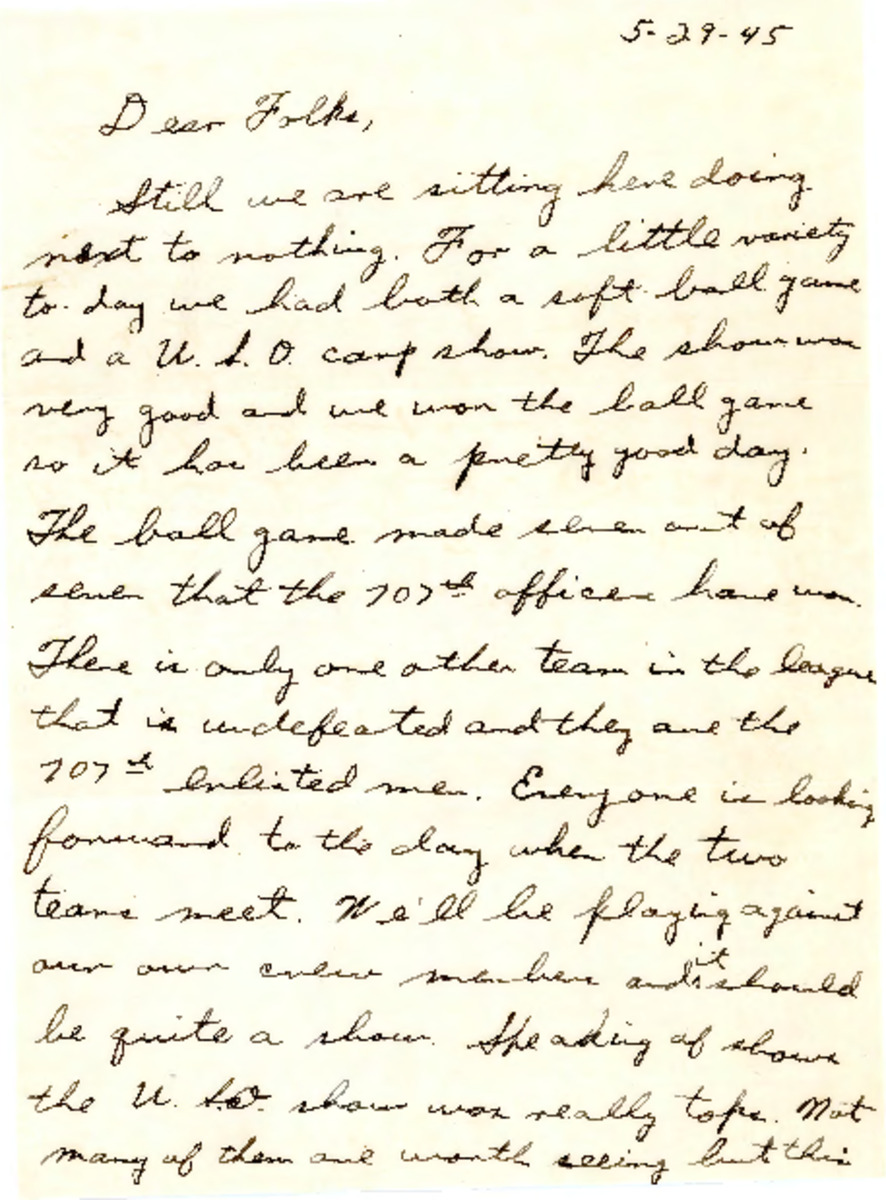 5-29-45
Dear Folks,
Still we are sitting here doing
next to nothing. For a little variety
to-day we had both a soft ball game
and a U. S. O. camp show. The show was
very good and we won the ball game
so it has been a pretty good day.
The ball game made seven out of
seven that the 707th officers have won.
There is only one other team in the league
that is undefeated and they are the
707th enlisted men. Everyone is looking
forward to the day when the two
teams meet. We'll be playing against
our own crew members and it should
be quite a show. Speaking of shows
the U. S. O. show was really tops. Not
many of them are worth seeing but this